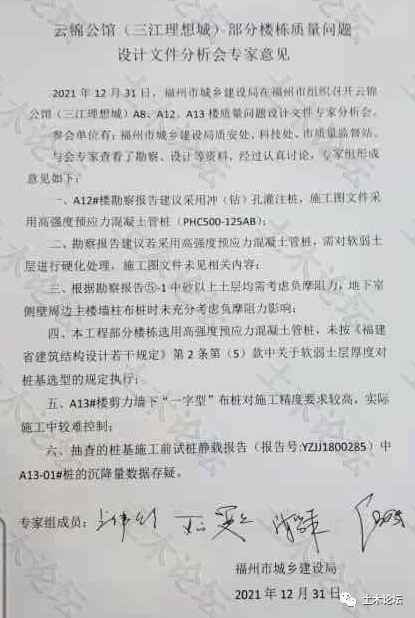 云锦公馆（三江理想城）部分楼栋质量问题
设计文件分析会专家意见
2021 年 12 月 31 日，福州市城乡建设局在福州市组织召开云锦
公馆（三江理想城）A8、A12、A13 楼质量问题设计文件专家分析会。
参会单位有：福州市城乡建设局质安处、科技处、市质量监督站。
与会专家查看了勘察、设计等资料，经过认真讨论，专家组形成
意见如下：
一、A12#楼勘察报告建议采用冲（钻）孔灌注桩，施工图文件采
用高强度预应力混凝土管桩（PHC500-125AB）；
二、勘察报告建议若采用高强度预应力混凝土管桩，需对软弱土
层进行硬化处理，施工图文件未见相关内容；
三、根据勘察报告⑤-1 中砂以上土层均需考虑负摩阻力，地下室
侧壁周边主楼墙柱布桩时未充分考虑负摩阻力影响；
四、本工程部分楼栋选用高强度预应力混凝土管桩，未按《福建
省建筑结构设计若干规定》第 2 条第（5）款中关于软弱土层厚度对
桩基选型的规定执行；
五、A13#楼剪力墙下“一字型”布桩对施工精度要求较高，实际
施工中较难控制；
六、抽查的桩基施工前试桩静载报告（报告号:YZJJ1800285）中
A13-01#桩的沉降量数据存疑。
专家组成员：
福州市城乡建设局
2021 年 12 月 31 日
土木论坛